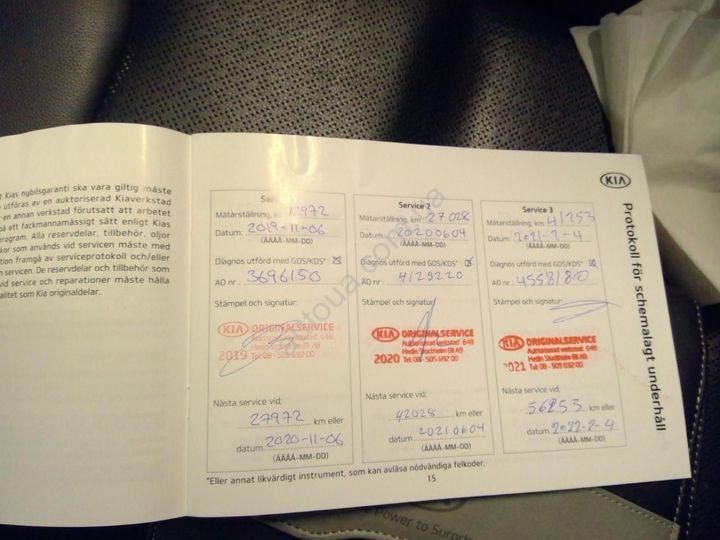 t Kias nybilsgaranti ska vara giltig måste
utföras av en auktoriserad Kiaverkstad
en annan verkstad förutsatt att arbetet
på ett fackmannamässigt sätt enligt Kias
program. Alla reservdelar, tillbehör, oljor
kor som används vid servicen måste med
tion framgå av serviceprotokoll och/eller
n servicen. De reservdelar och tillbehör som
vid service och reparationer måste hålla
alitet som Kia originaldelar.
KIA
Protokoll för schemalagt underhåll
Mätarställning, km 12972
Datum: 2019-11-06
(ÅÅÅÅ-MM-DD)
Diagnos utförd med GDS/KDS*
AO nr: 3696150
Stämpel och signatur:
KIA ORIGINALSERVICE
Auktoriserad verkstad 648
Hedin Stockholm Bil AB
2019 Tel: 08 - 505 692 00
Nästa service vid;
27972 km eller
datum 2020-11-06
(ÅÅÅÅ-MM-DD)
Service 2
Mätarställning, km 27028
Datum: 20200604
(ÅÅÅÅ-MM-DD)
Diagnos utförd med GDS/KDS*
AO nr: 4129220
Stämpel och signatur:
KIA ORIGINALSERVICE
Auktoriserad verkstad 648
Hedin Stockholm Bil AB
2020 Tel: 08 - 505 692 00
Nästa service vid;
42028 km eller
datum 20210604
(ÅÅÅÅ-MM-DD)
Service 3
Mätarställning, km 41253
Datum: 2021-2-4
(ÅÅÅÅ-MM-DD)
Diagnos utförd med GDS/KDS*
AO nr: 4558180
Stämpel och signatur:
KIA ORIGINALSERVICE
Auktoriserad verkstad 648
Hedin Stockholm Bil AB
2021 Tel: 08 - 505 692 00
Nästa service vid;
56253 km eller
datum 2022-2-4
(ÅÅÅÅ-MM-DD)
*Eller annat likvärdigt instrument, som kan avläsa nödvändiga felkoder.
15
Power to Surpris